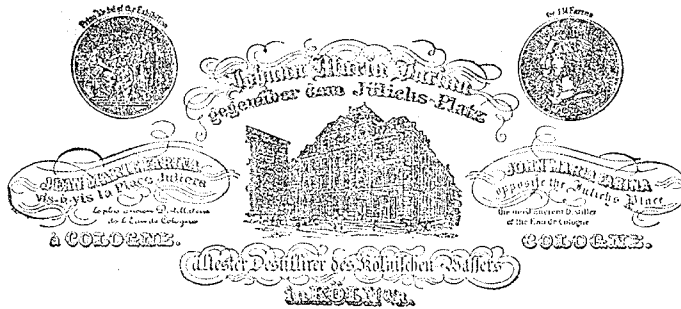 Prize Medal of the Exhibition
for J.M.Farina
Johann Maria Farina
gegenüber dem Jülichs-Platz
JEAN MARIE FARINA
vis-à-vis la Place Juliers
le plus ancien Distillateur
de l'Eau de Cologne
À COLOGNE.
JOHN MARIA FARINA
opposite the Julichs Place
the most ancient Distiller
of the Eau de Cologne
COLOGNE.
ältester Destillirer des Kölnischen Wassers
in KÖLN